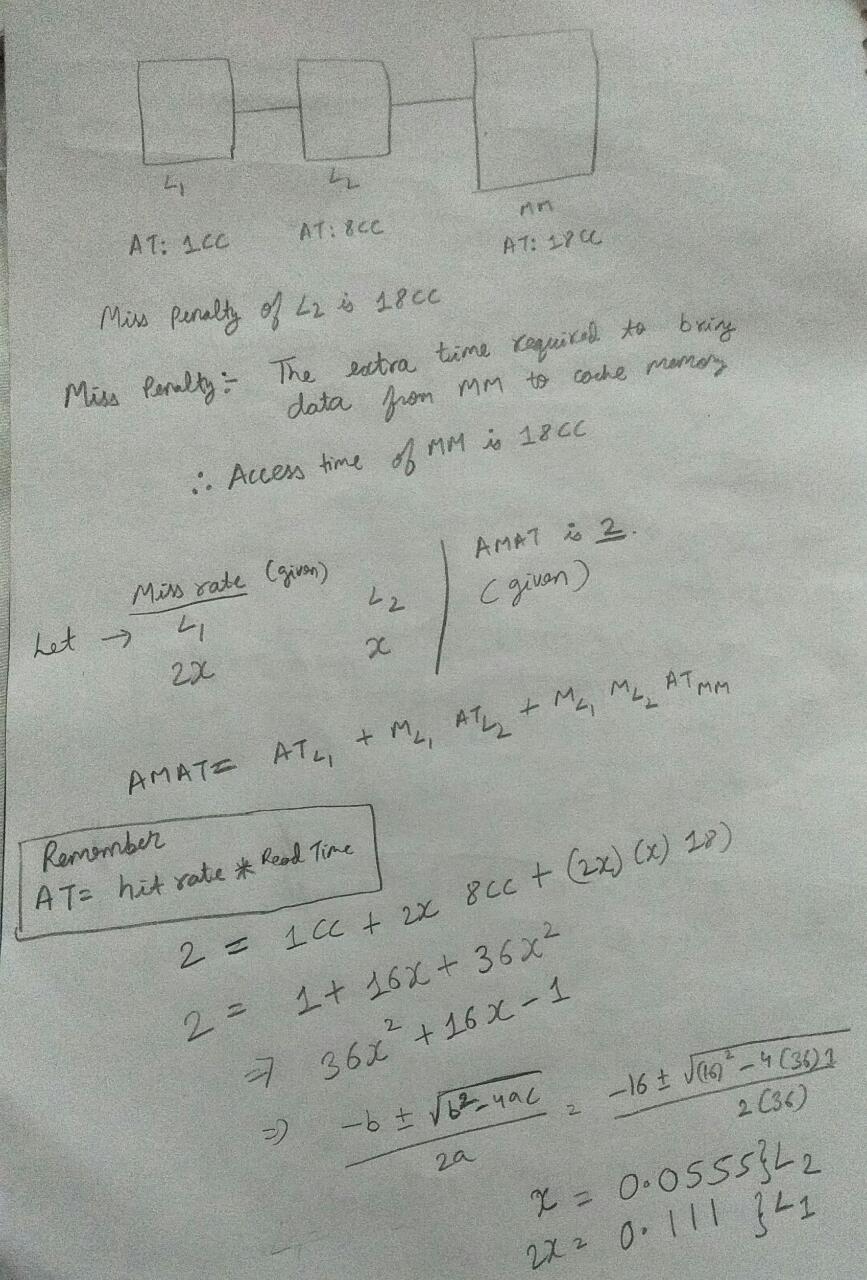 L1 L2 MM
AT: 1CC AT: 8CC AT: 18CC
Miss Penalty of L2 is 18CC
Miss Penalty:- The extra time required to bring
data from MM to cache memory
∴ Access time of MM is 18CC
Miss rate (given)
Let → L1 L2
2x x
AMAT is 2.
(given)
AMAT = AT_L1 + M_L1 AT_L2 + M_L1 M_L2 AT_MM
Remember
AT = hit rate * Read Time
2 = 1CC + 2x 8CC + (2x) (x) 18)
2 = 1 + 16x + 36x²
⇒ 36x² + 16x - 1
⇒ -b ± √b²-4ac / 2a = -16 ± √(16)² - 4(36)1 / 2(36)
x = 0.0555}L2
2x = 0.111 }L1